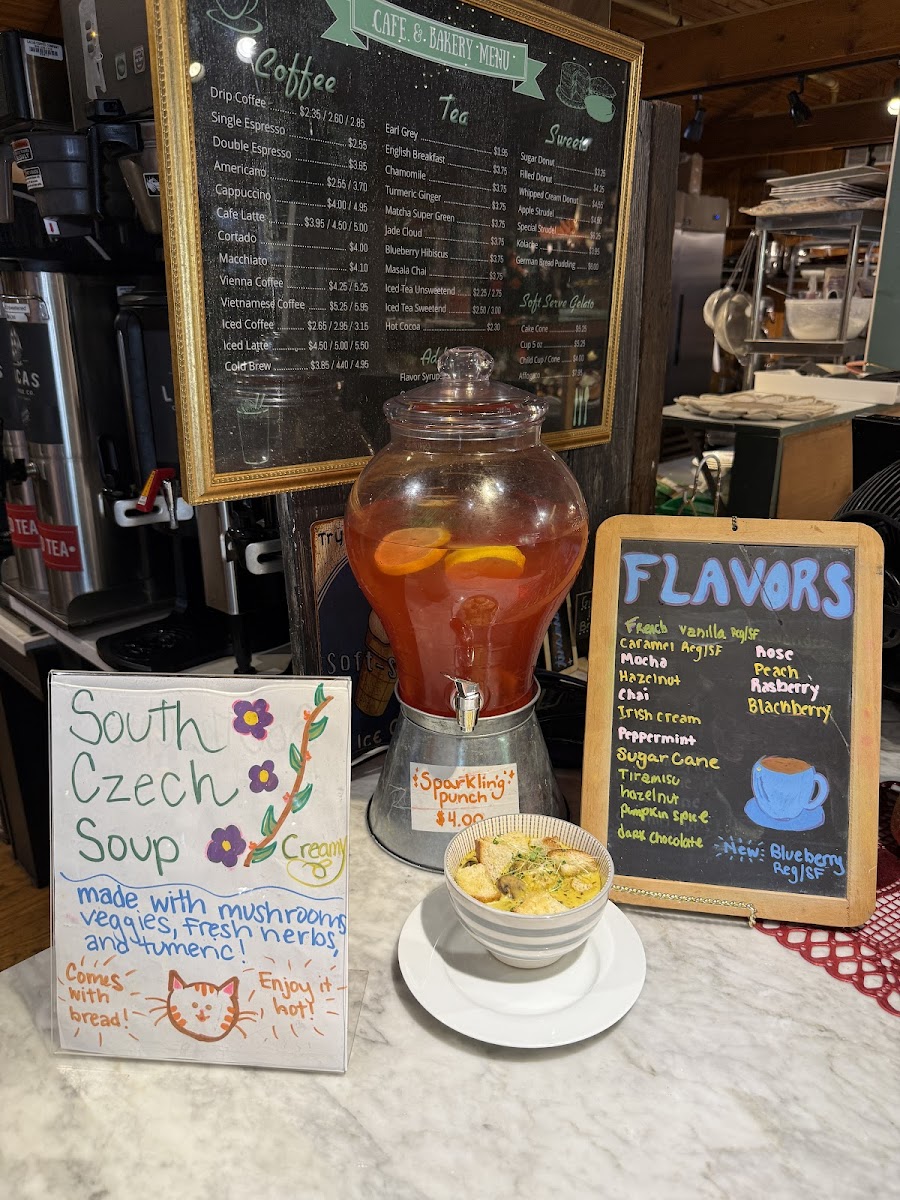 CAFE & BAKERY MENU
Coffee
Drip Coffee $2.35 / 2.60 / 2.85
Single Espresso $2.55
Double Espresso $3.85
Americano $2.55 / 3.70
Cappuccino $4.00 / 4.95
Cafe Latte $3.95 / 4.50 / 5.00
Cortado $4.00
Macchiato $4.10
Vienna Coffee $4.25 / 5.25
Vietnamese Coffee $5.25 / 5.95
Iced Coffee $2.65 / 2.95 / 3.15
Iced Latte $4.50 / 5.00 / 5.50
Cold Brew $3.85 / 4.40 / 4.95
Tea
Earl Grey
English Breakfast $3.75
Chamomile $3.75
Turmeric Ginger $3.75
Matcha Super Green $3.75
Jade Cloud $3.75
Blueberry Hibiscus $3.75
Masala Chai $3.75
Iced Tea Unsweetend $2.25 / 2.75
Iced Tea Sweetend $2.50 / 3.00
Hot Cocoa
Flavor Syrups
Sweets
Sugar Donut $3.25
Filled Donut $4.25
Whipped Cream Donut
Apple Strudel
Special Strudel
Kolache
German Bread Pudding
Soft Serve Gelato
Cake Cone
Cup 5 oz $5.25
Child Cup / Cone $4.00
Affogato
TEA
Try
Soft-S
South
Czech
Soup
Creamy
made with mushrooms,
veggies, fresh herbs,
and tumeric!
Comes
with
bread!
Enjoy it
hot!
Sparkling
punch
$4.00
FLAVORS
French vanilla Reg/SF
Caramel Reg/SF
Mocha
Hazelnut
Chai
Irish cream
Peppermint
Sugar Cane
Tiramisu
hazelnut
pumpkin spice
dark chocolate
Rose
Peach
Rasberry
Blackberry
New: Blueberry
Reg/SF